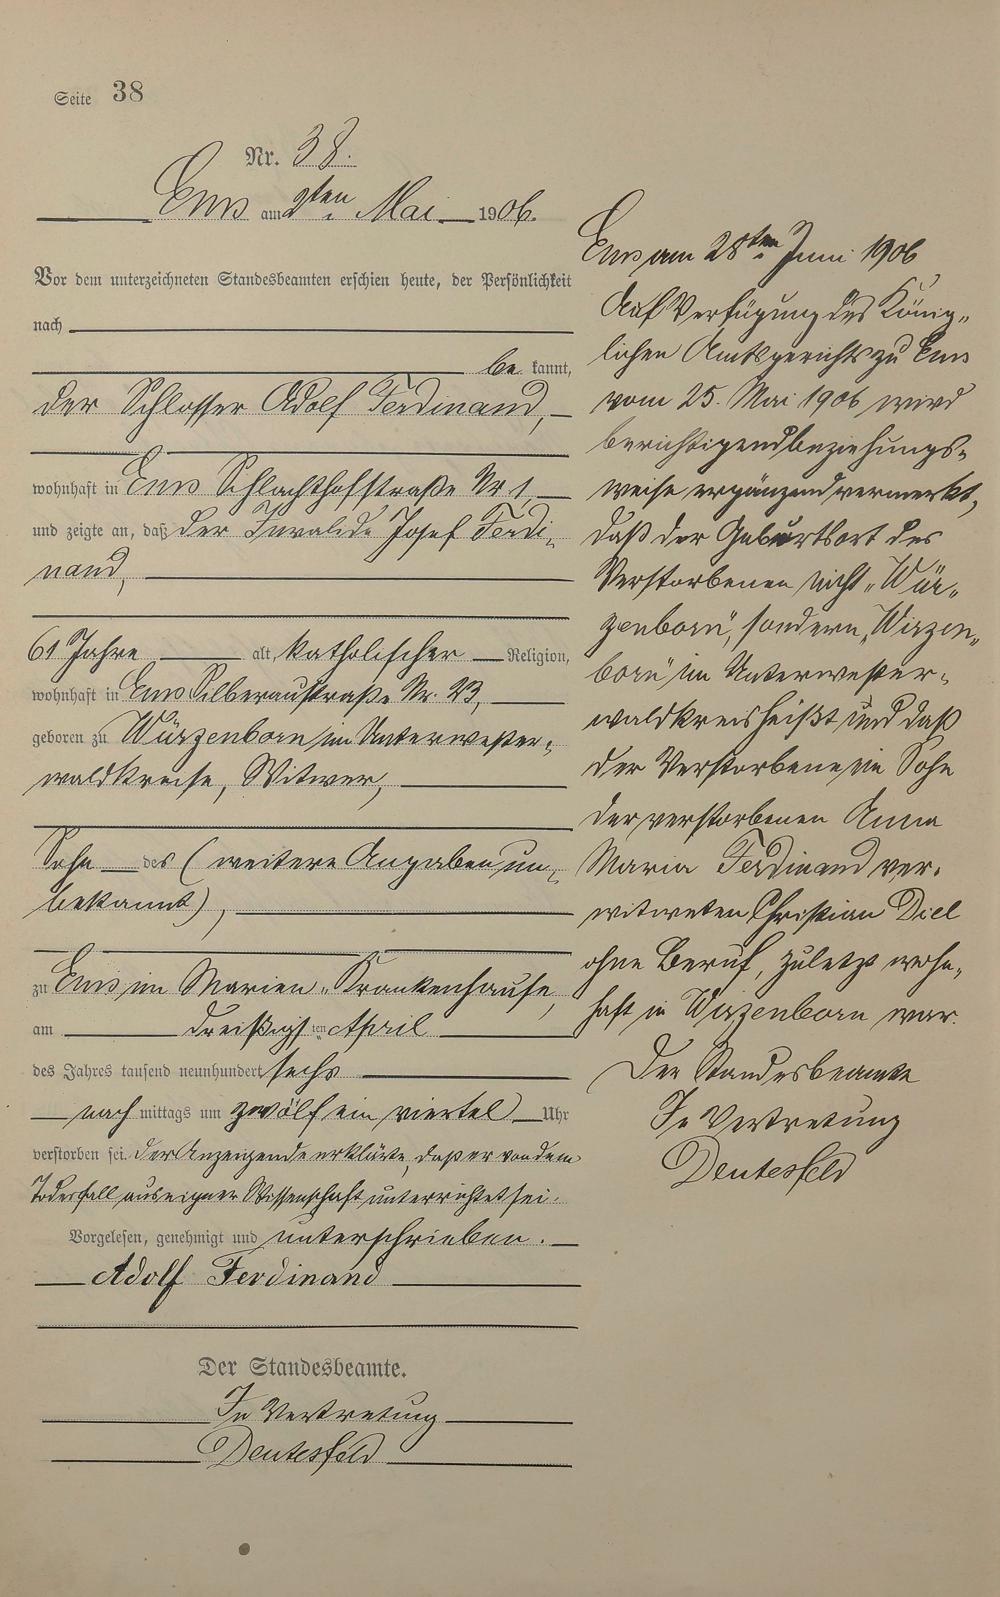 Seite 38
Nr. 38.
Ems am 2ten Mai 1906.
Vor dem unterzeichneten Standesbeamten erschien heute, der Persönlichkeit
nach
be kannt,
der Schlosser Adolf Ferdinand,
wohnhaft in Ems Schlachthofstraße Nr 1,
und zeigte an, daß der Invalide Josef Ferdi-
nand,
61 Jahre alt, katholischer Religion,
wohnhaft in Ems Silberaustraße Nr. 23,
geboren zu Würzenborn im Unterwester-
waldkreise, Witwer,
Sohn des (weitere Angaben un-
bekannt),
zu Ems im Marien-Krankenhause,
am dreißigsten April
des Jahres tausend neunhundert sechs
nach mittags um zwölf ein viertel Uhr
verstorben sei. Der Anzeigende erklärte, daß er von dem
Todesfall aus eigner Wissenschaft unterrichtet sei.
Vorgelesen, genehmigt und unterschrieben.
Adolf Ferdinand
Der Standesbeamte.
In Vertretung
Deutesfeld
Ems am 28ten Juni 1906
Auf Verfügung des König-
lichen Amtsgerichts zu Ems
vom 25. Mai 1906 wird
berichtigend beziehungs-
weise ergänzend vermerkt,
daß der Geburtsort des
Verstorbenen nicht „Wür-
zenborn", sondern „Wirzen-
born" im Unterwester-
waldkreis heißt und daß
der Verstorbene ein Sohn
der verstorbenen Anna
Maria Ferdinand ver-
witweten Christian Diel
ohne Beruf, zuletzt wohn-
haft in Wirzenborn war.
Der Standesbeamte
In Vertretung
Deutesfeld